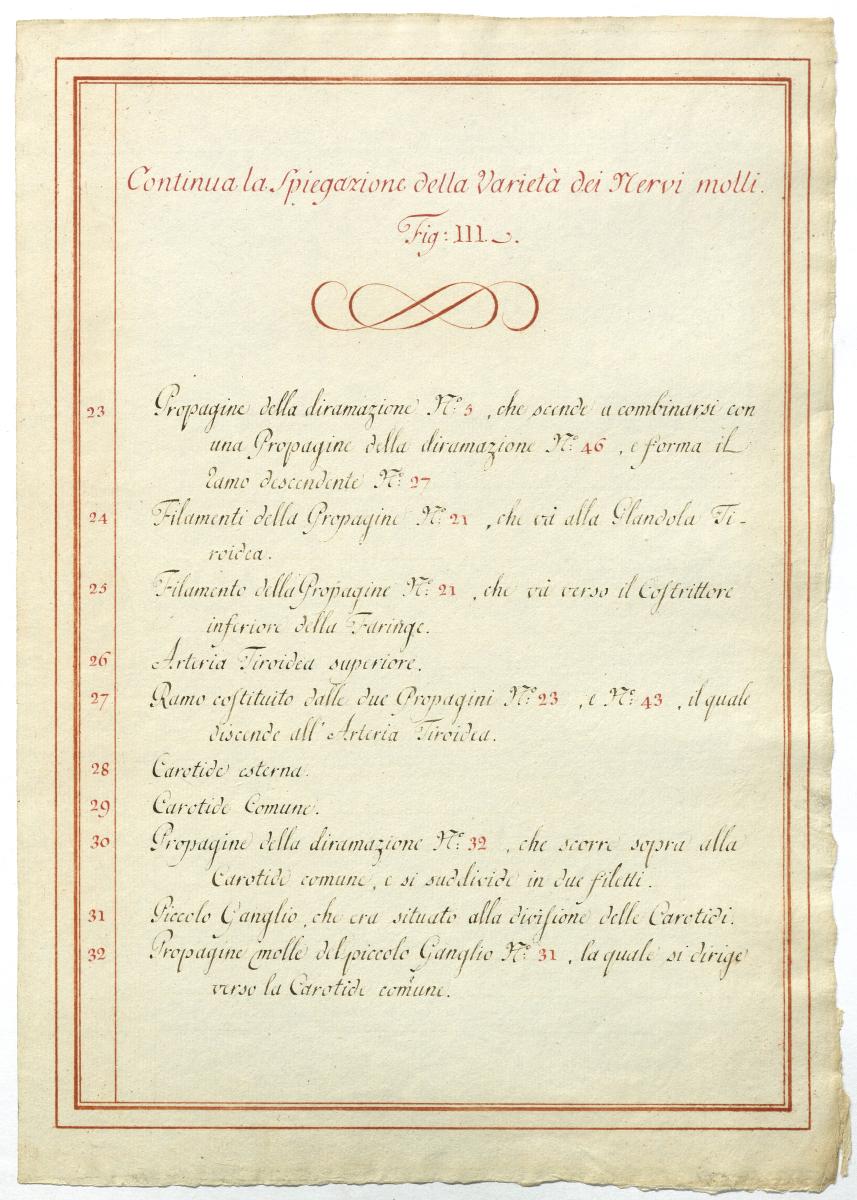 Continua la Spiegazione della Varietà dei Nervi molli.
Fig: III.
23 Propagine della diramazione N.º 5, che scende a combinarsi con
una Propagine della diramazione N.º 46, e forma il
Ramo descendente N.º 27
24 Filamenti della Propagine N.º 21, che và alla Glandola Ti-
roidea.
25 Filamento della Propagine N.º 21, che và verso il Coſtrittore
inferiore della Faringe.
26 Arteria Tiroidea superiore.
27 Ramo coſtituito dalle due Propagini N.º 23, e N.º 43, il quale
discende all' Arteria Tiroidea.
28 Carotide esterna.
29 Carotide Comune.
30 Propagine della diramazione N.º 32, che scorre sopra alla
Carotide comune, e si suddivide in due filetti.
31 Piccolo Ganglio, che era situato alla diviſione delle Carotidi.
32 Propagine molle del piccolo Ganglio N.º 31, la quale si dirige
verso la Carotide comune.